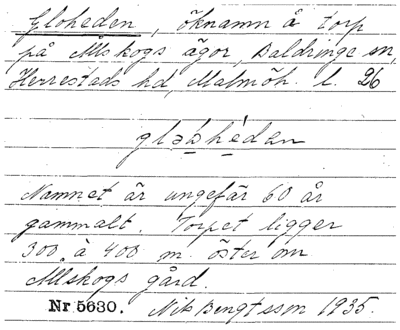 Gloheden, öknamn å torp
på Allskogs ägor, Baldringe sn,
Herrestads hd, Malmöh. l. 26
Namnet är ungefär 60 år
gammalt. Torpet ligger
300 à 400 m. öster om
Allskogs gård.
Nr 5630. Nils Bengtsson 1935.